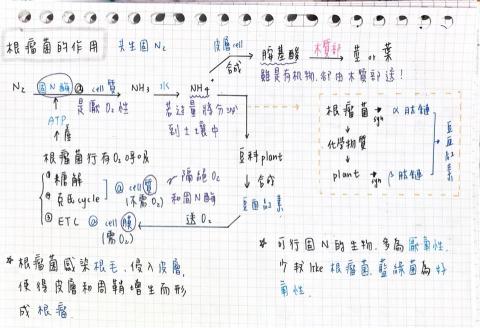 根瘤菌的作用
共生固N₂
皮層cell
合成
胺基酸
木質部
莖or葉
雖是有机物，卻由木質部送！
N₂
固N酶
@ cell質
是厭O₂性
NH₃
水
NH₄⁺
若過量將分泌
到土壤中
ATP
產
根瘤菌行有O₂呼吸
糖解
克氏cycle
@ cell質
(不需O₂)
隔絕O₂
和固N酶
ETC
@ cell膜
(需O₂)
送O₂
豆科plant
合成
豆血紅素
根瘤菌
syn
α胜鏈
化學物質
plant
syn
β胜鏈
豆血紅素
* 根瘤菌感染根毛，侵入皮層，
使得皮層和周鞘增生而形
成根瘤
* 可行固N的生物，多為厭氧性，
少數like根瘤菌、藍綠菌為好
氧性．